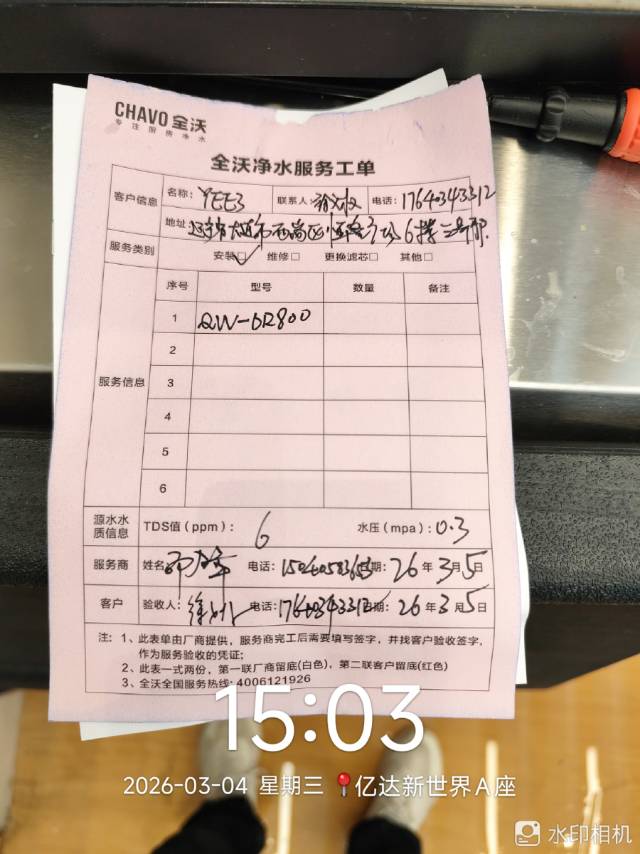 CHAVO 全沃
专注厨房净水
全沃净水服务工单
客户信息 名称: YEE3 联系人: 电话: 17640343312
地址: 辽宁省大连市西岗区 6楼三号
服务类别 安装☑ 维修□ 更换滤芯□ 其他□
服务信息 序号 型号 数量 备注
1 QW-DR800
2
3
4
5
6
源水水质信息 TDS值(ppm): 6 水压(mpa): 0.3
服务商 姓名 电话: 期: 26年3月5日
客户 验收人: 电话: 17640343312 期: 26年3月5日
注: 1、此表单由厂商提供,服务商完工后需要填写签字,并找客户验收签字,
作为服务验收的凭证;
2、此表一式两份,第一联厂商留底(白色),第二联客户留底(红色)
3、全沃全国服务热线: 4006121926
15:03
2026-03-04 星期三 亿达新世界A座
水印相机